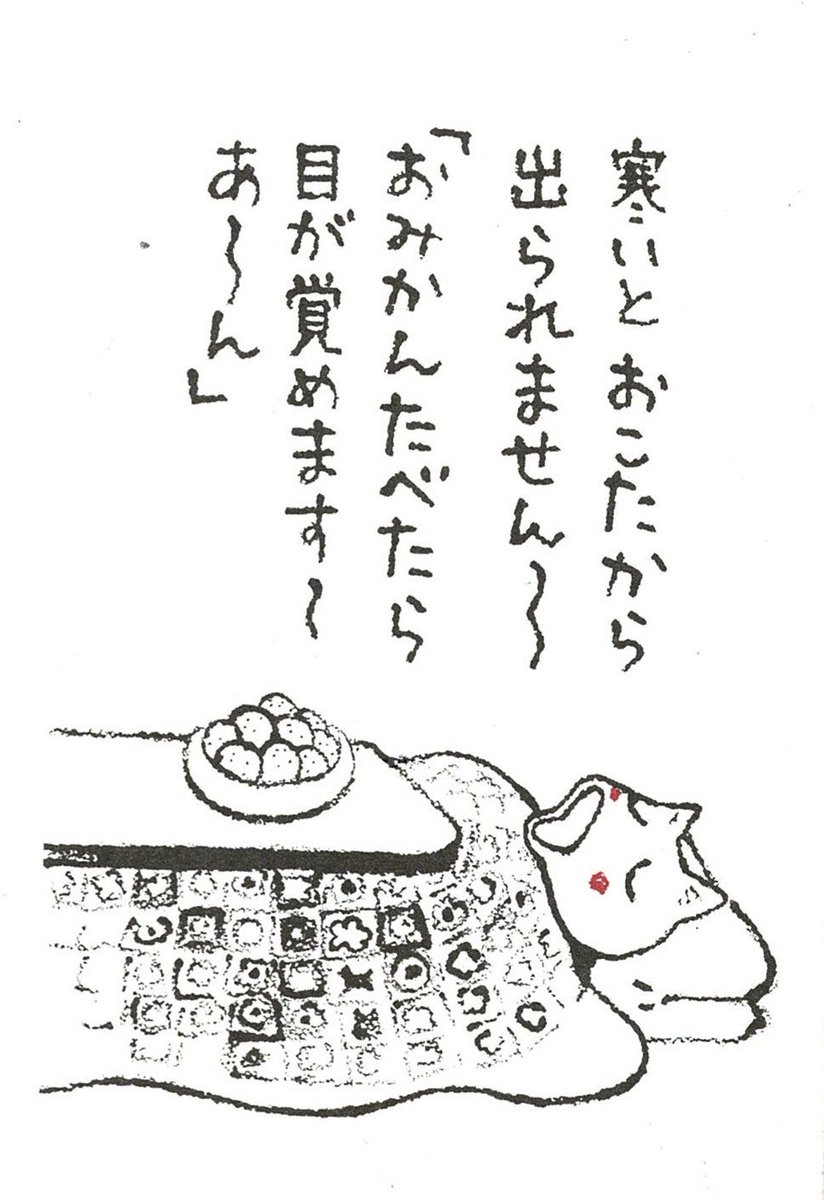 寒いと おこたから
出られません〜
「おみかんたべたら
目が覚めます〜
あ〜ん」